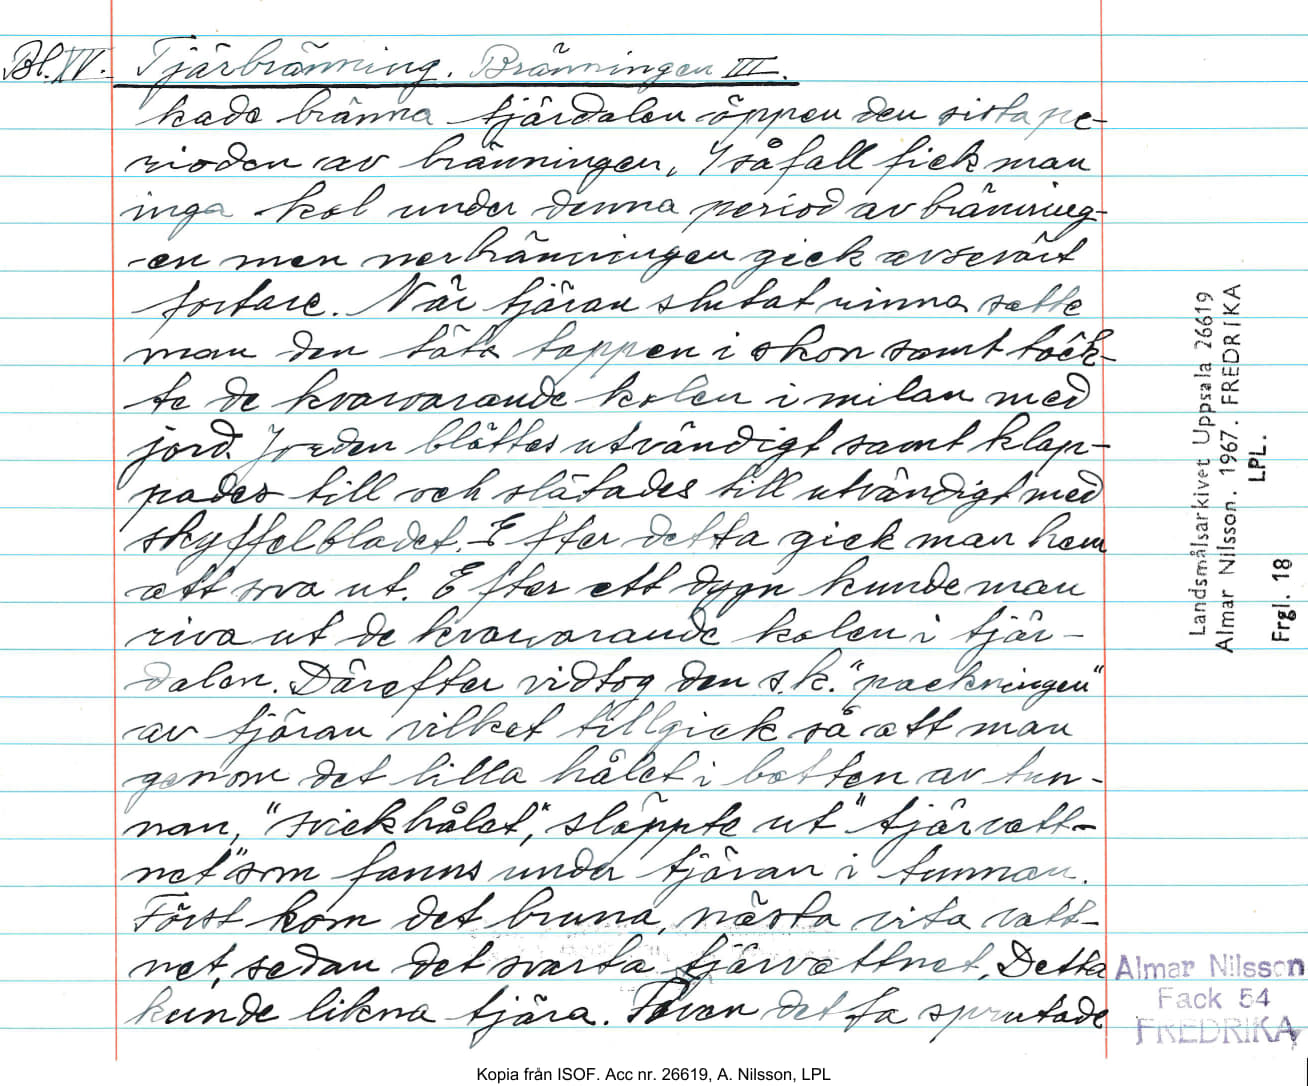 Bl. XV. Tjärbränning. Bränningen III.
kade bränna tjärdalen öppen den sista pe-
rioden av bränningen, I så fall fick man
inga kol under denna period av bränning-
-en men nerbränningen gick avsevärt
fortare. När tjäran slutat rinna satte
man den täta tappen i skon samt täck-
te de kvarvarande kolen i milan med
jord. Jorden blöttes utvändigt samt klap-
pades till och slätades till utvändigt med
skyffelbladet. Efter detta gick man hem
att sova ut. Efter ett dygn kunde man
riva ut de kvarvarande kolen i tjär-
dalen. Därefter vidtog den s.k. "packningen"
av tjäran vilket tillgick så att man
genom det lilla hålet i botten av tun-
nan, "svickhålet", släppte ut "tjärvatt-
net" som fanns under tjäran i tunnan.
Först kom det bruna, nästa vita vatt-
net, sedan det svarta tjärvattnet, Detta
kunde likna tjära. Även det fa sprutade
Landsmålsarkivet Uppsala 26619
Almar Nilsson. 1967. FREDRIKA
LPL.
Frgl. 18
Almar Nilsson
Fack 54
FREDRIKA
Kopia från ISOF. Acc nr. 26619, A. Nilsson, LPL